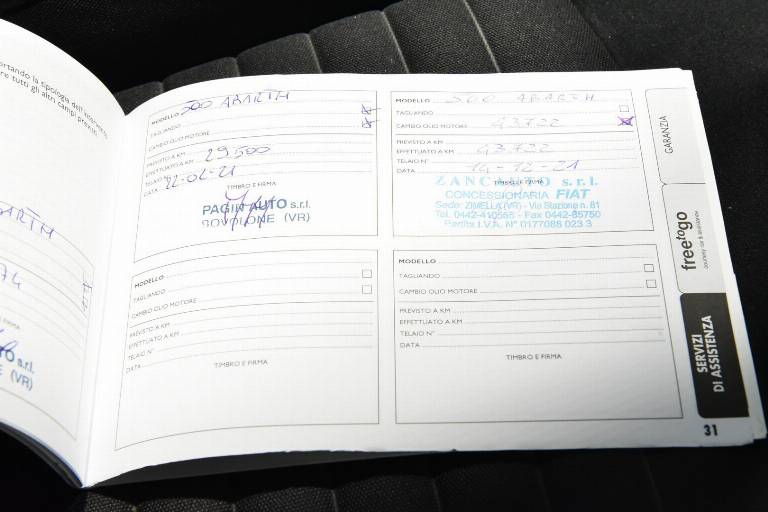 ortando la tipologia dell'intervento
re tutti gli altri campi previsti.
ABARTH
74
FIRMA
O s.r.l.
E (VR)
MODELLO 500 ABARTH
TAGLIANDO
CAMBIO OLIO MOTORE
PREVISTO A KM
EFFETTUATO A KM 29.500
TELAIO N°
DATA 22-02-21
TIMBRO E FIRMA
PAGIN AUTO s.r.l.
BOVOLONE (VR)
MODELLO 500 ABARTH
TAGLIANDO
CAMBIO OLIO MOTORE 43722
PREVISTO A KM
EFFETTUATO A KM 43722
TELAIO N°
DATA 14-12-21
TIMBRO E FIRMA
ZANCANUTO s.r.l.
CONCESSIONARIA FIAT
Sede: ZIMELLA (VR) - Via Stazione n. 81
Tel. 0442-410566 - Fax 0442-85750
Partita I.V.A. N° 0177088 023 3
MODELLO
TAGLIANDO
CAMBIO OLIO MOTORE
PREVISTO A KM
EFFETTUATO A KM
TELAIO N°
DATA
TIMBRO E FIRMA
MODELLO
TAGLIANDO
CAMBIO OLIO MOTORE
PREVISTO A KM
EFFETTUATO A KM
TELAIO N°
DATA
TIMBRO E FIRMA
GARANZIA
freetogo
SERVIZI
DI ASSISTENZA
31